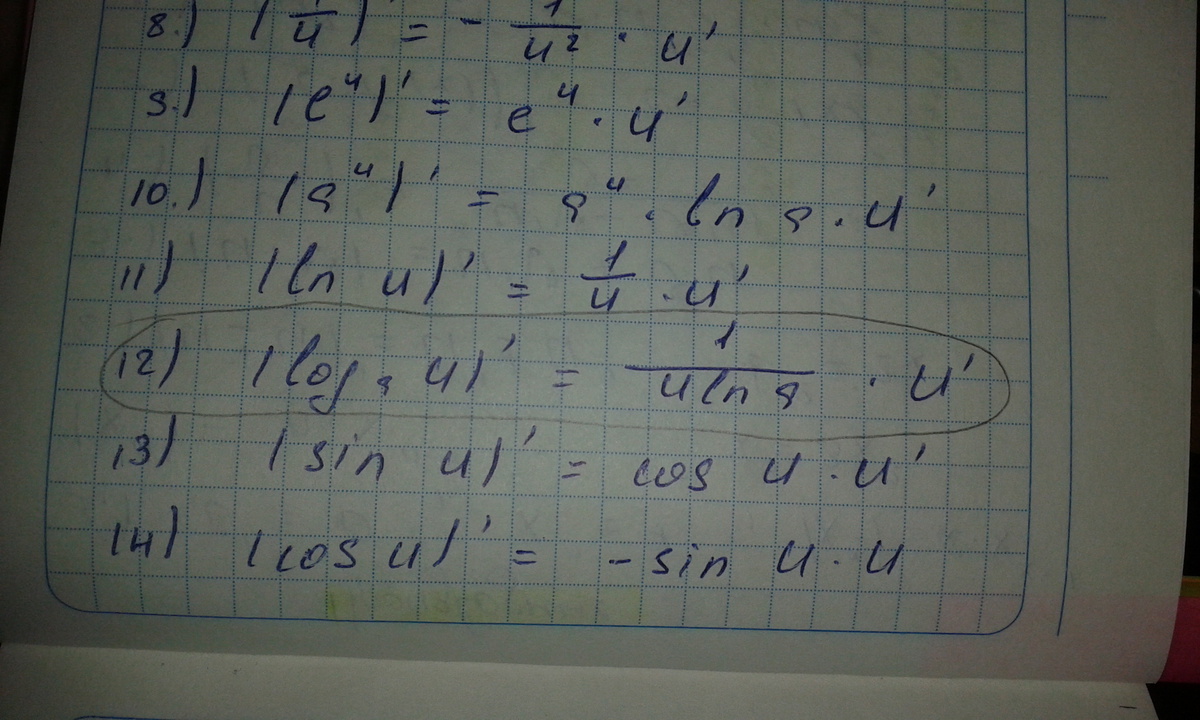 8.) (1/u)' = - 1/u² · u'
9.) (e^u)' = e^u · u'
10.) (a^u)' = a^u · ln a · u'
11) (ln u)' = 1/u · u'
12) (log_a u)' = 1/(u ln a) · u'
13) (sin u)' = cos u · u'
14) (cos u)' = - sin u · u